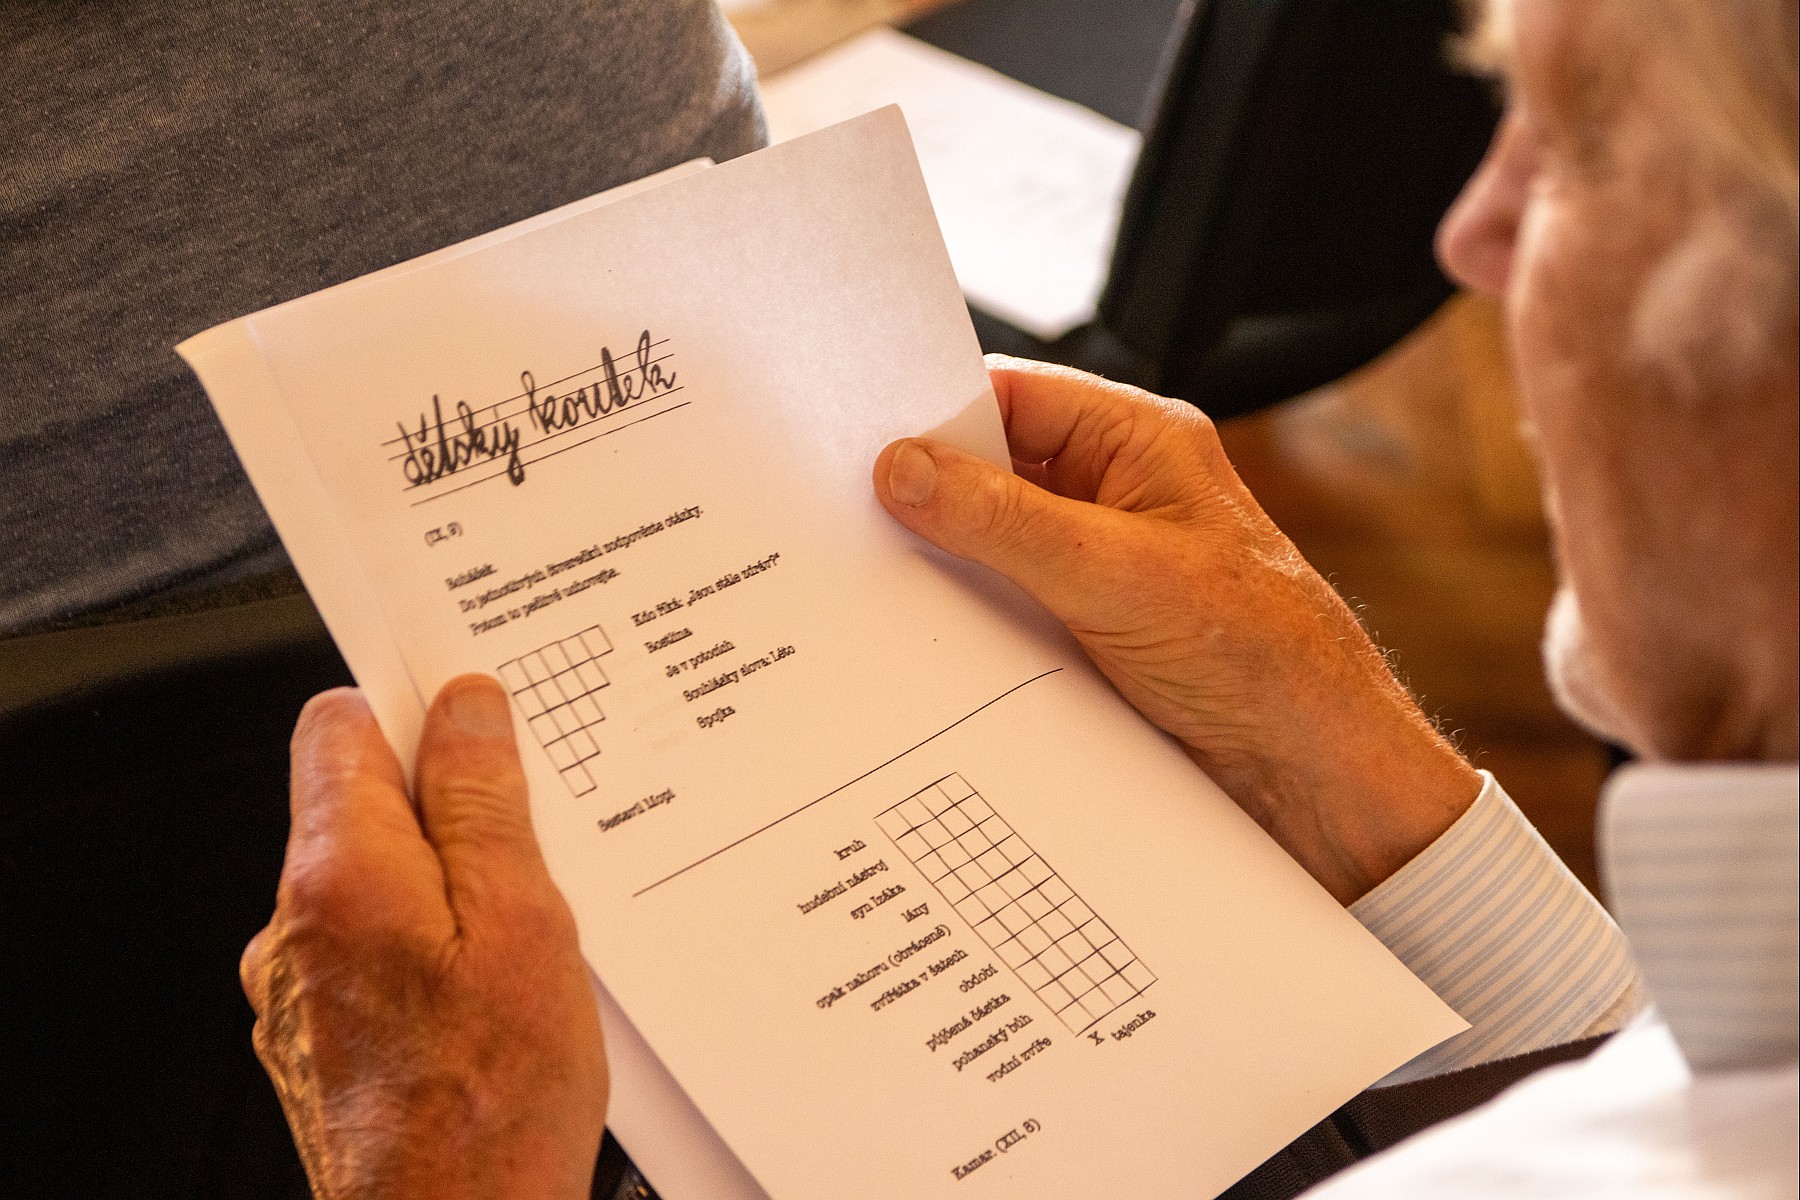 dětský koutek
(IX, 3)
Schášek.
Do jednotlivých čtverečků zodpovězte otázky.
Potom to pečlivě uchovejte.
Kdo říká: „Jsou stále zdráv?“
Rostlina
Je v potocích
Souhlásky slova: Léto
Spojka
Sestavil Mopi
kruh
hudební nástroj
syn Izáka
lány
opak nahoru (obráceně)
zvířátka v šatech
období
půjčená částka
pohanský bůh
vodní zvíře
X tajenka
Kamar. (XII, 3)